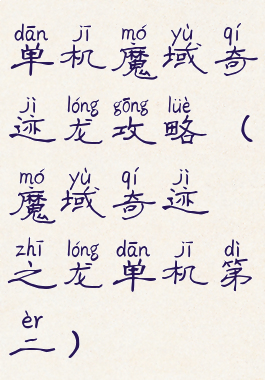 dān jī mó yù qí
单机魔域奇
jì lóng gōng lüè
迹龙攻略（
mó yù qí jì
魔域奇迹
zhī lóng dān jī dì
之龙单机第
èr
二）